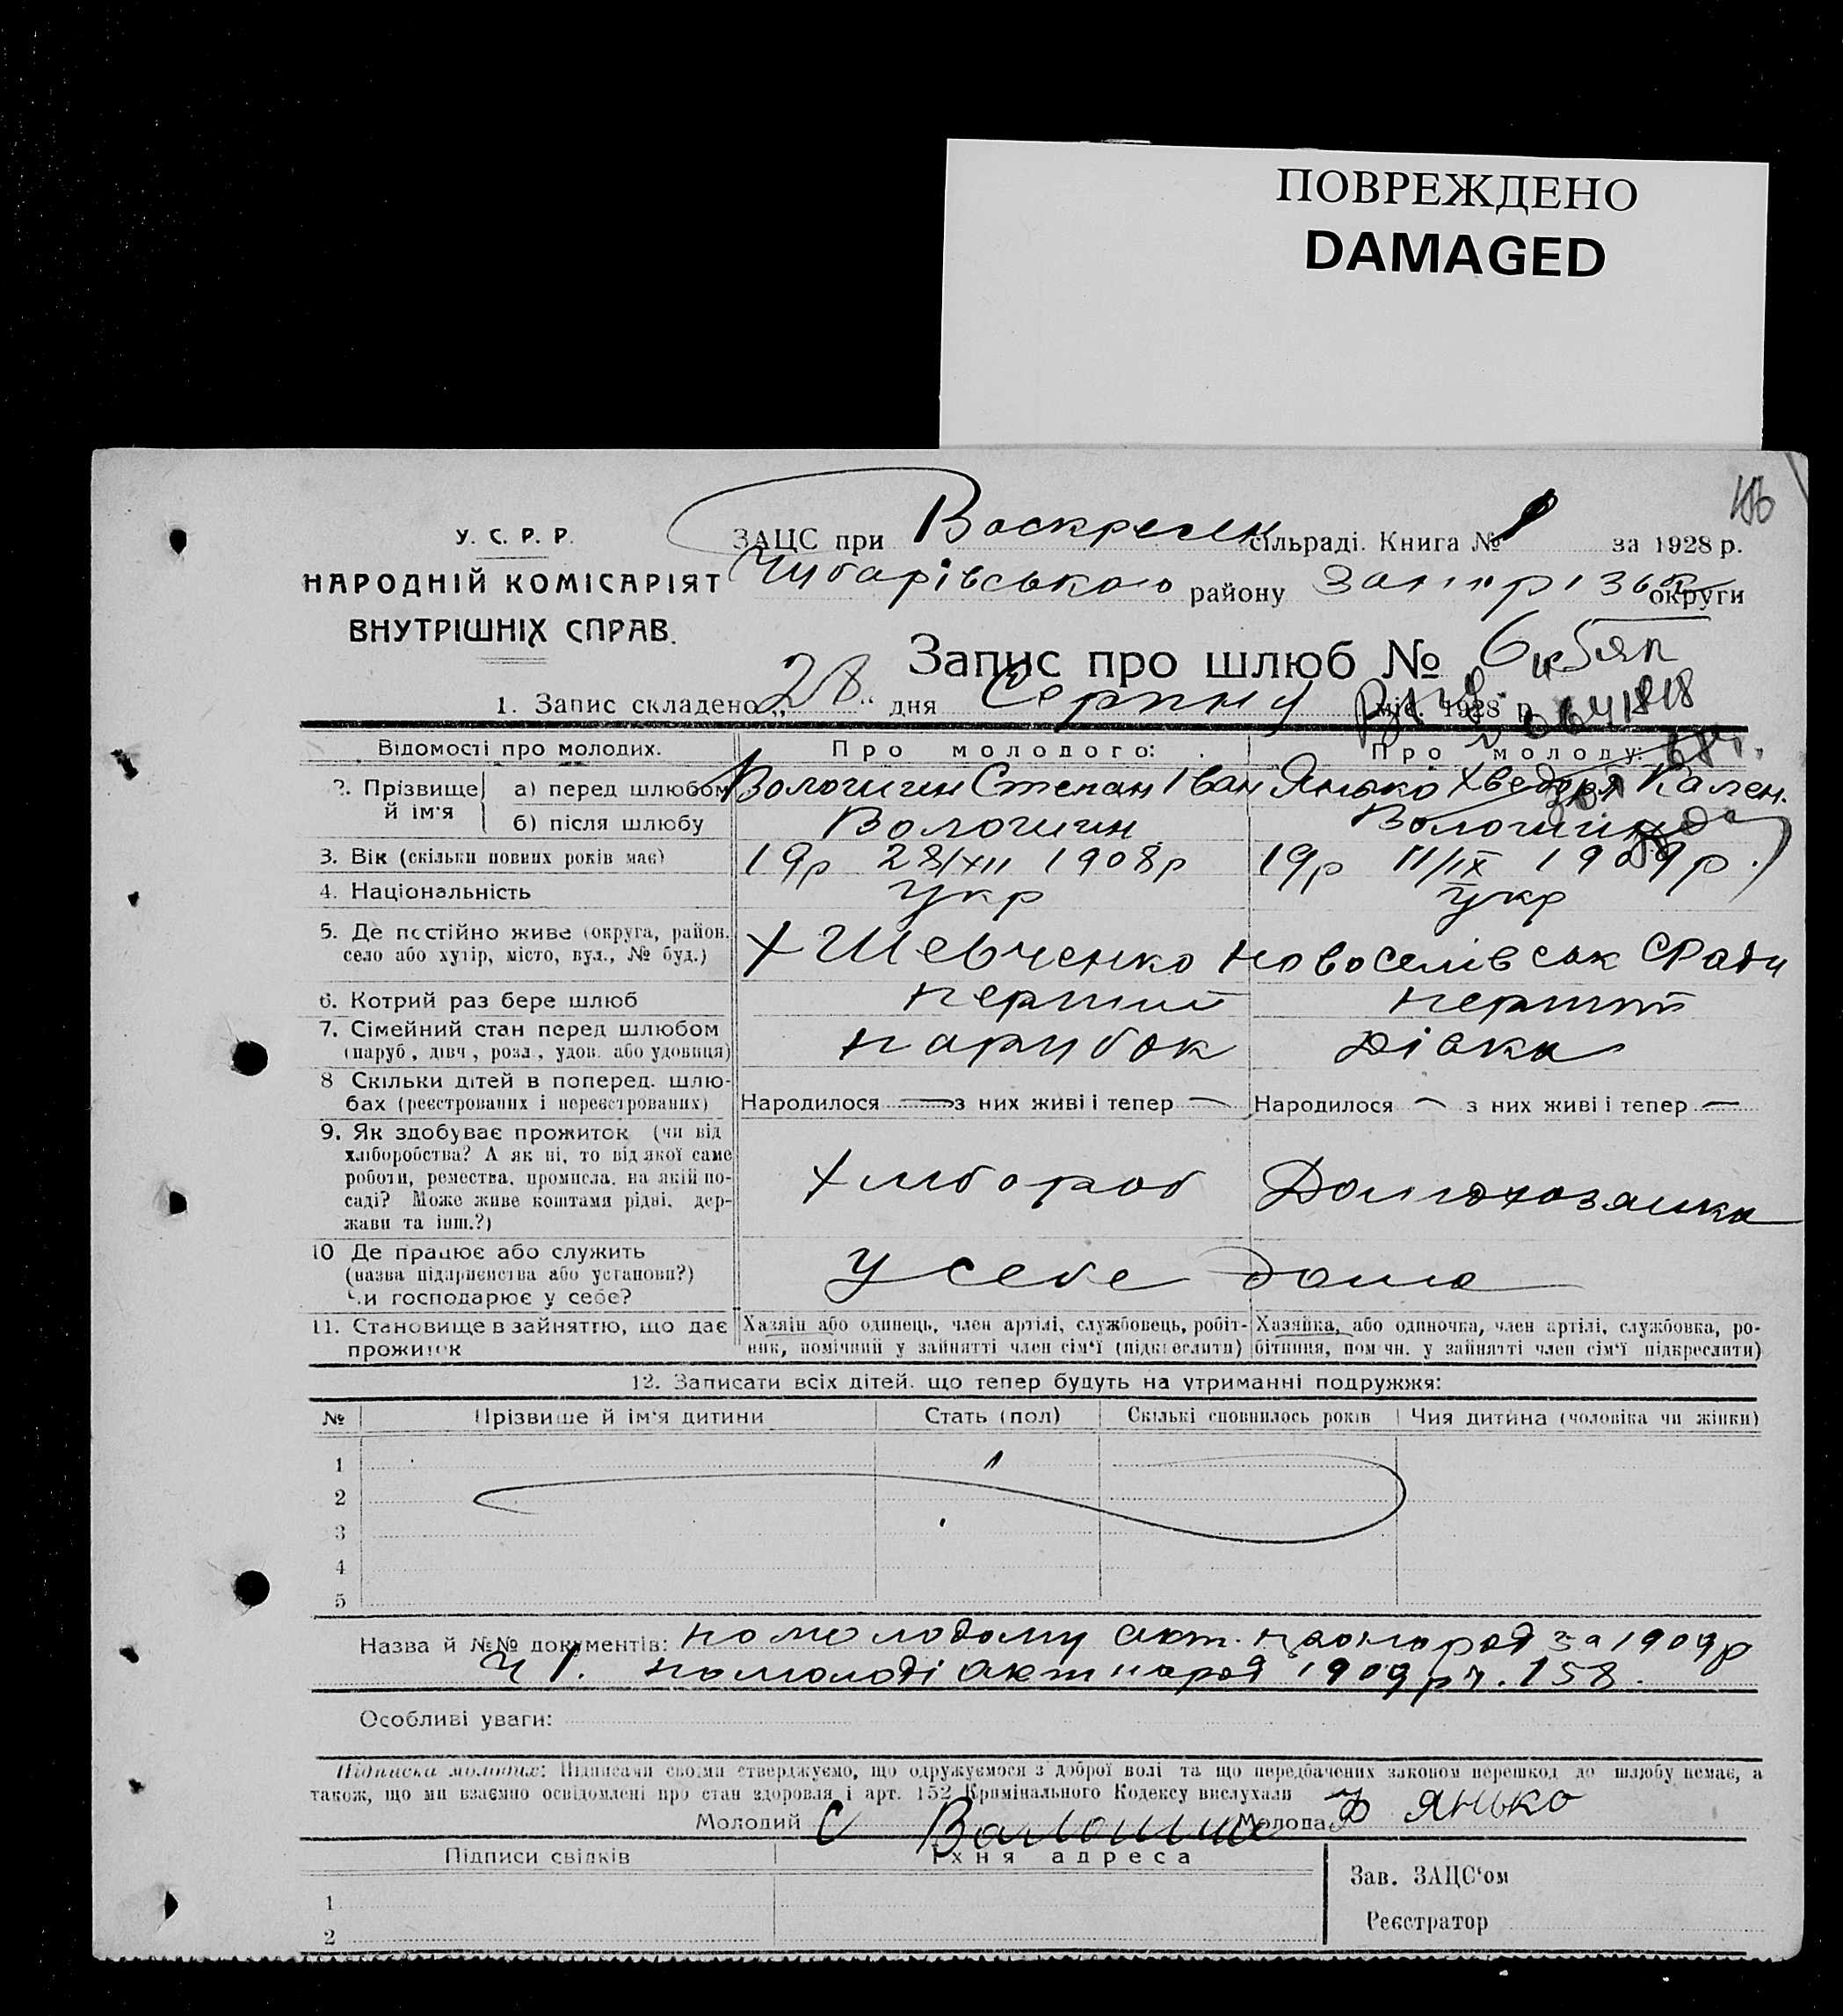 ПОВРЕЖДЕНО
DAMAGED
У. С. Р. Р.
НАРОДНІЙ КОМІСАРІЯТ
ВНУТРІШНІХ СПРАВ.
ЗАЦС при Воскресен сільраді. Книга № 1 за 1928 р.
Чубарівського району округи
Запис про шлюб № 6
1. Запис складено „28“ дня Серпня міс. 1928 р.
Відомості про молодих.
Про молодого:
Про молоду:
2. Прізвище й ім'я
а) перед шлюбом Волошин Степан Іван Янько Хведора Кален.
б) після шлюбу Волошин Волошин
3. Вік (скільки повних років має) 19р 28/XII 1908р 19р II/IX 1909р.
4. Національність Укр Укр
5. Де постійно живе (округа, район.
село або хутір, місто, вул., № буд.) Х Шевченко Новоселівськ СРади
6. Котрий раз бере шлюб перший перший
7. Сімейний стан перед шлюбом
(паруб, дівч, розл, удов. або удовиця) парубок дівка
8 Скільки дітей в поперед. шлю-
бах (реєстрованих і нереєстрованих) Народилося — з них живі і тепер — Народилося — з них живі і тепер —
9. Як здобуває прожиток (чи від
хліборобства? А як ні, то від якої саме
роботи, ремества, промисла, на якій по-
саді? Може живе коштами рідні, дер-
жави та інш.?)
Хлибороб Домохозяика
10 Де працює або служить
(назва підприємства або установи?)
Чи господарює у себе?
У себе дома
11. Становище в зайняттю, що дає
прожиток
Хазяїн або одинець, член артілі, службовець, робіт-
ник, помічний у зайнятті член сім'ї (підкреслити)
Хазяйка, або одиночка, член артілі, службовка, ро-
бітниця, пом чн. у зайнятті член сім'ї підкреслити)
12. Записати всіх дітей, що тепер будуть на утриманні подружжя:
№ Прізвище й ім'я дитини Стать (пол) Скількі сповнилось років Чия дитина (чоловіка чи жінки)
1
2
3
4
5
Назва й №№ документів: по молодому акт. народ за 1909р
ч 1. по молоді акт народ 1909р ч. 158.
Особливі уваги:
Підписка молодих: Підписами своїми стверджуємо, що одружуємося з доброї волі та що передбачених законом перешкод до шлюбу немає, а
також, що ми взаємно освідомлені про стан здоровля і арт. 152 Кримінального Кодексу вислухали
Молодий С Волошин Молода Ф Янько
Підписи свідків
Їхня адреса
Зав. ЗАЦС'ом
1
Реєстратор
2